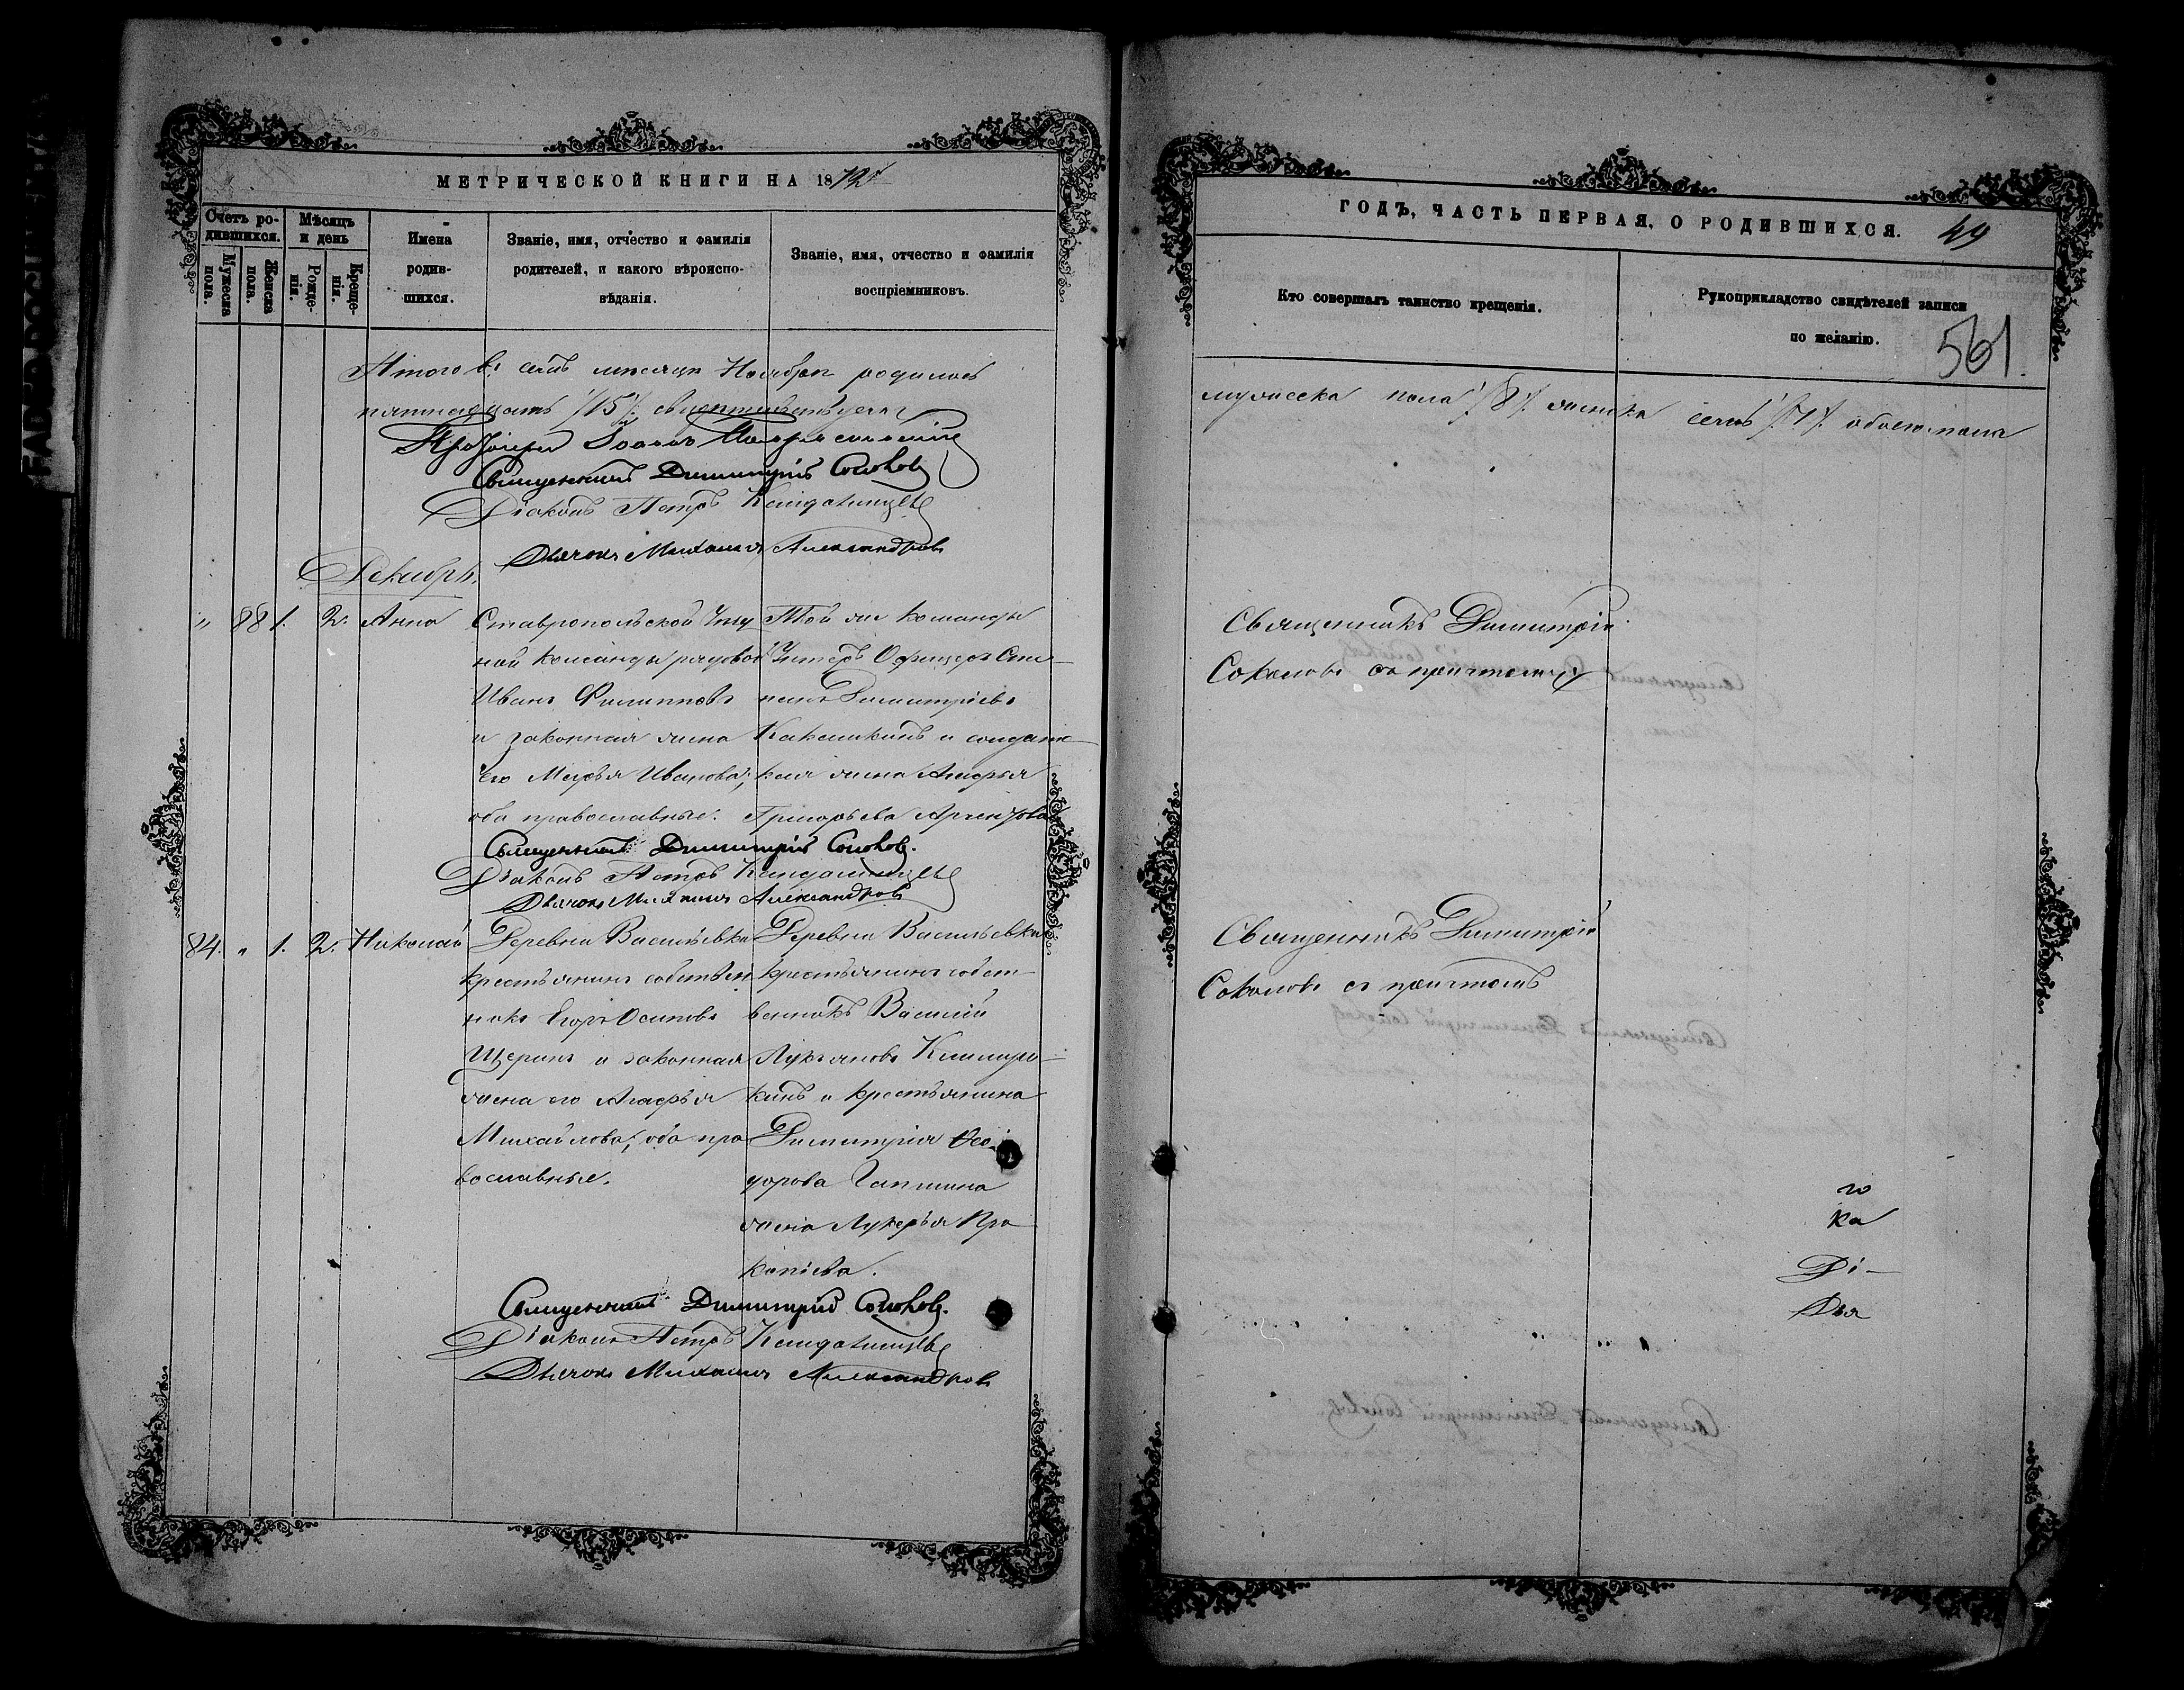 МЕТРИЧЕСКОЙ КНИГИ НА 1872й
Счетъ родившихся.
Мужеска пола.
Женска пола.
Мѣсяцъ и день
Рожденія.
Крещенія.
Имена родившихся.
Званіе, имя, отчество и фамилія
родителей, и какого вѣроиспо-
вѣданія.
Званіе, имя, отчество и фамилія
воспріемниковъ.
Итого въ семъ мѣсяцѣ Ноябрѣ родилось
мужеска пола /8/. женска семь /7/. обоего пола
пятнадцать /15/. свидѣтельствуемъ
Протоіерей Іоаннъ
Священникъ Димитрій Соколовъ
Діаконъ Петръ
Дьячокъ Михаилъ Александровъ
Декабрь.
" 88 1. 2. Анна
Ставропольской Уѣзд
ной команды рядовой
Иванъ Филипповъ
и законная жена
его Марья Иванова;
оба православные.
Той же команды
Унтеръ Офицеръ Сте-
панъ Димитріевъ
и солдат-
кая жена Агафья
Григорьева
Священникъ Димитрій Соколовъ.
Діаконъ Петръ
Дьячокъ Михаилъ Александровъ
84. " 1. 2. Николай
Деревни Васильевки
крестьянинъ собствен
никъ Егоръ Осиповъ
Щеринъ и законная
жена его Агафья
Михайлова; оба пра
вославные.
Деревни Васильевки
крестьянинъ собст-
венникъ Василій
Лукьяновъ
кинъ и крестьянина
Димитрія Ѳео
дорова Гапшина
жена Лукерья Про
копіева.
Священникъ Димитрій Соколовъ.
Діаконъ Петръ
Дьячокъ Михаилъ Александровъ
ГОДЪ, ЧАСТЬ ПЕРВАЯ, О РОДИВШИХСЯ.
49
Кто совершалъ таинство крещенія.
Рукоприкладство свидѣтелей записи
по желанію.
561.
Священникъ Димитрій
Соколовъ съ причтомъ
Священникъ Димитрій
Соколовъ съ причтомъ
го
ка
Ді-
Дья